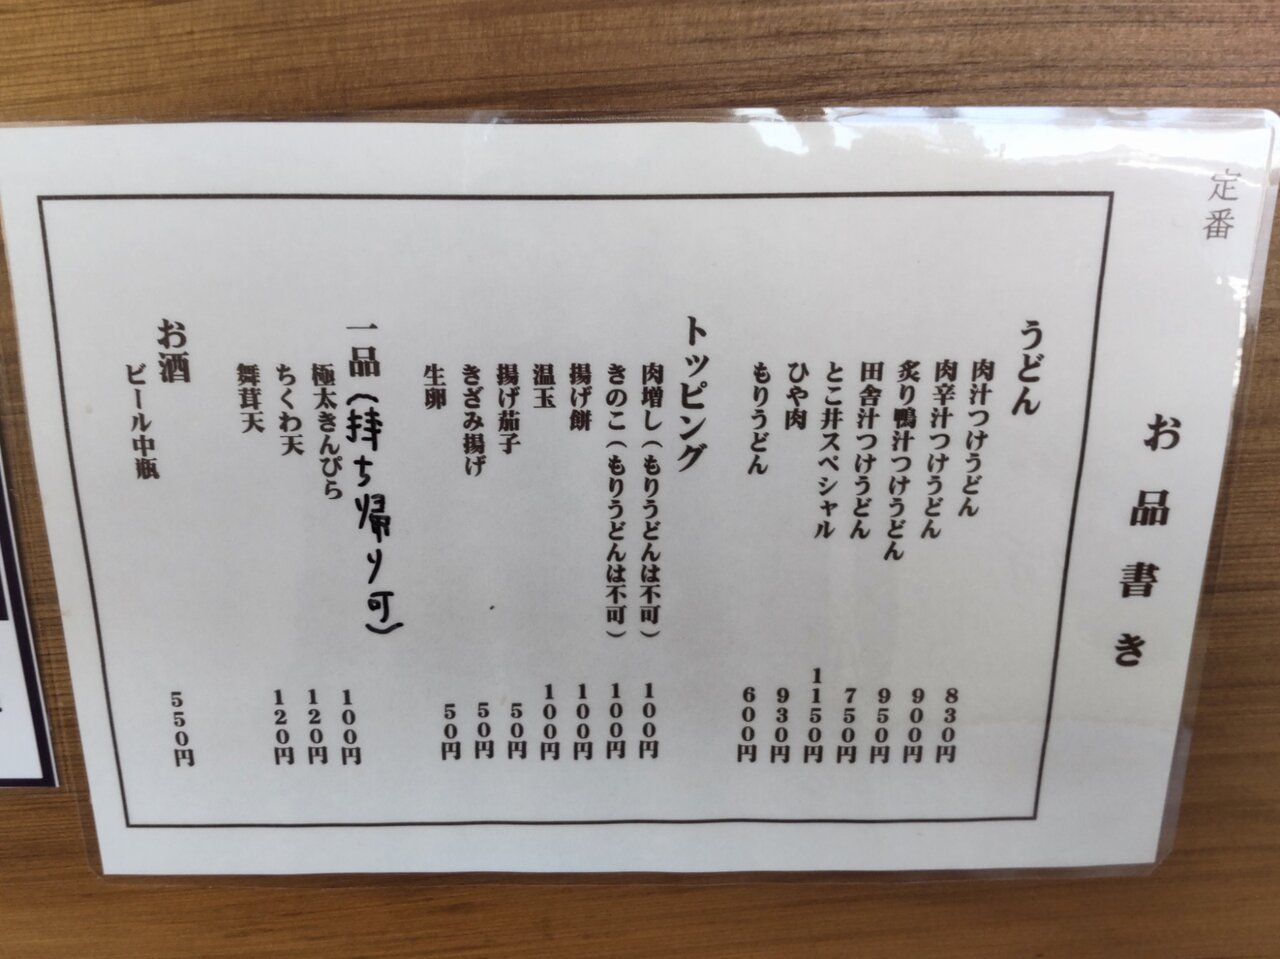 定番
お品書き
うどん
肉汁つけうどん 830円
肉辛汁つけうどん 900円
炙り鴨汁つけうどん 950円
田舎汁つけうどん 750円
とこ井スペシャル 1150円
ひや肉 930円
もりうどん 600円
トッピング
肉増し（もりうどんは不可） 100円
きのこ（もりうどんは不可） 100円
揚げ餅 100円
温玉 100円
揚げ茄子 50円
きざみ揚げ 50円
生卵 50円
一品（持ち帰り可）
極太きんぴら 100円
ちくわ天 120円
舞茸天 120円
お酒
ビール中瓶 550円